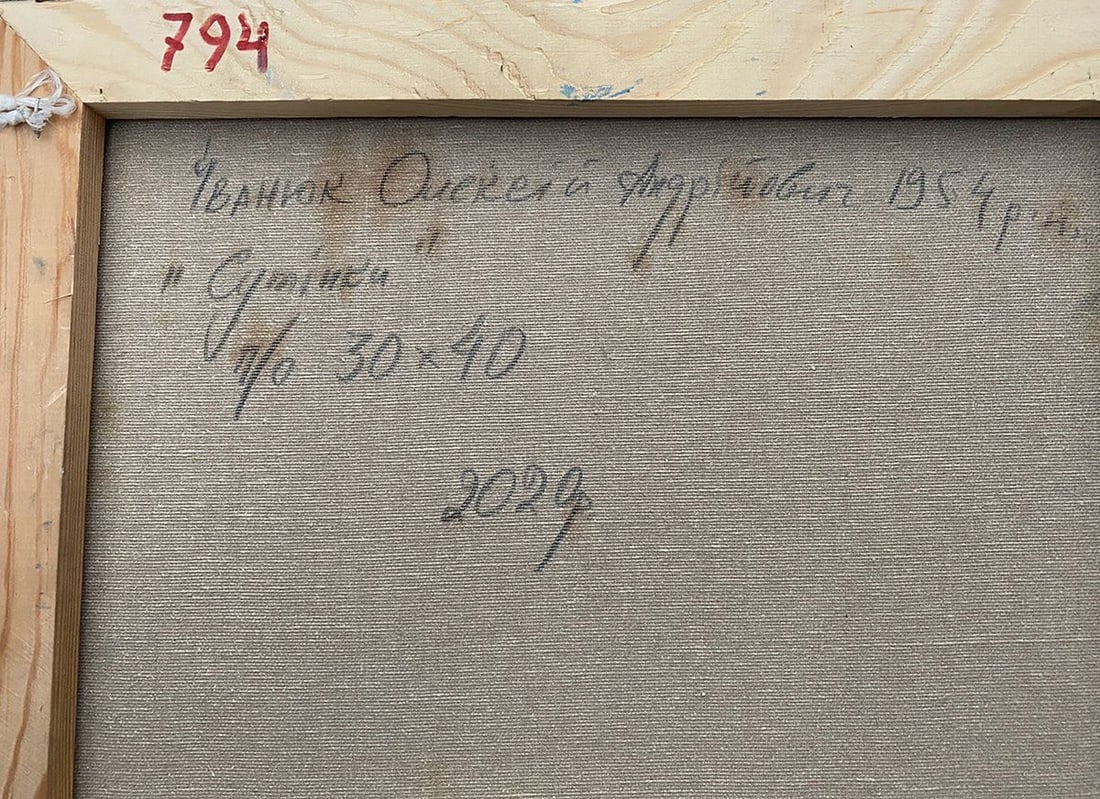 794
Іванюк Олексій Андрійович 1954 р.н.
"Сутінки"
п/о 30×40
2020р